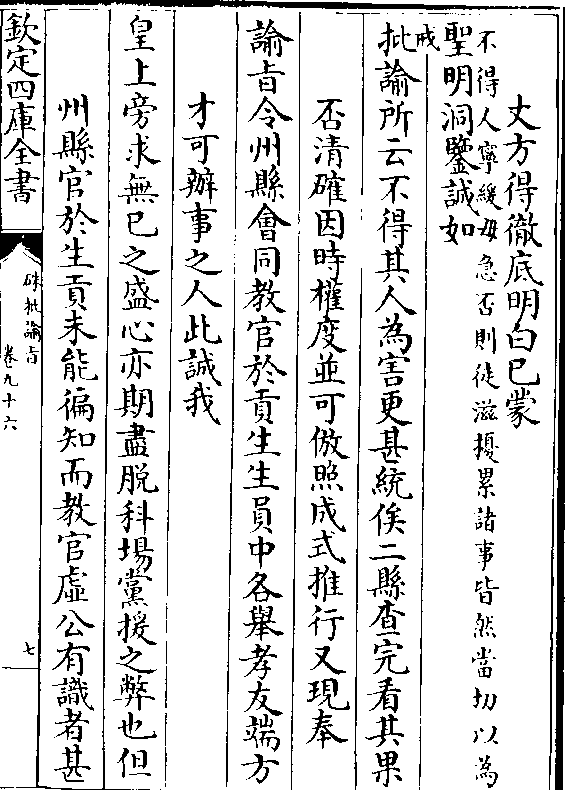 丈方得徹底明白已蒙
不得人寧緩毋急否則徒滋擾累諸事皆然當切以為
戒
聖明洞鑒誠如
批諭所云不得其人為害更甚統俟二縣查完看其果
否清確因時權度並可倣照成式推行又現奉
諭旨令州縣會同教官於貢生生員中各舉孝友端方
才可辦事之人此誠我
皇上旁求無已之盛心亦期盡脫科場黨援之弊也但
州縣官於生貢未能徧知而教官虛公有識者甚
欽定四庫全書
硃批諭旨
卷九十六
七